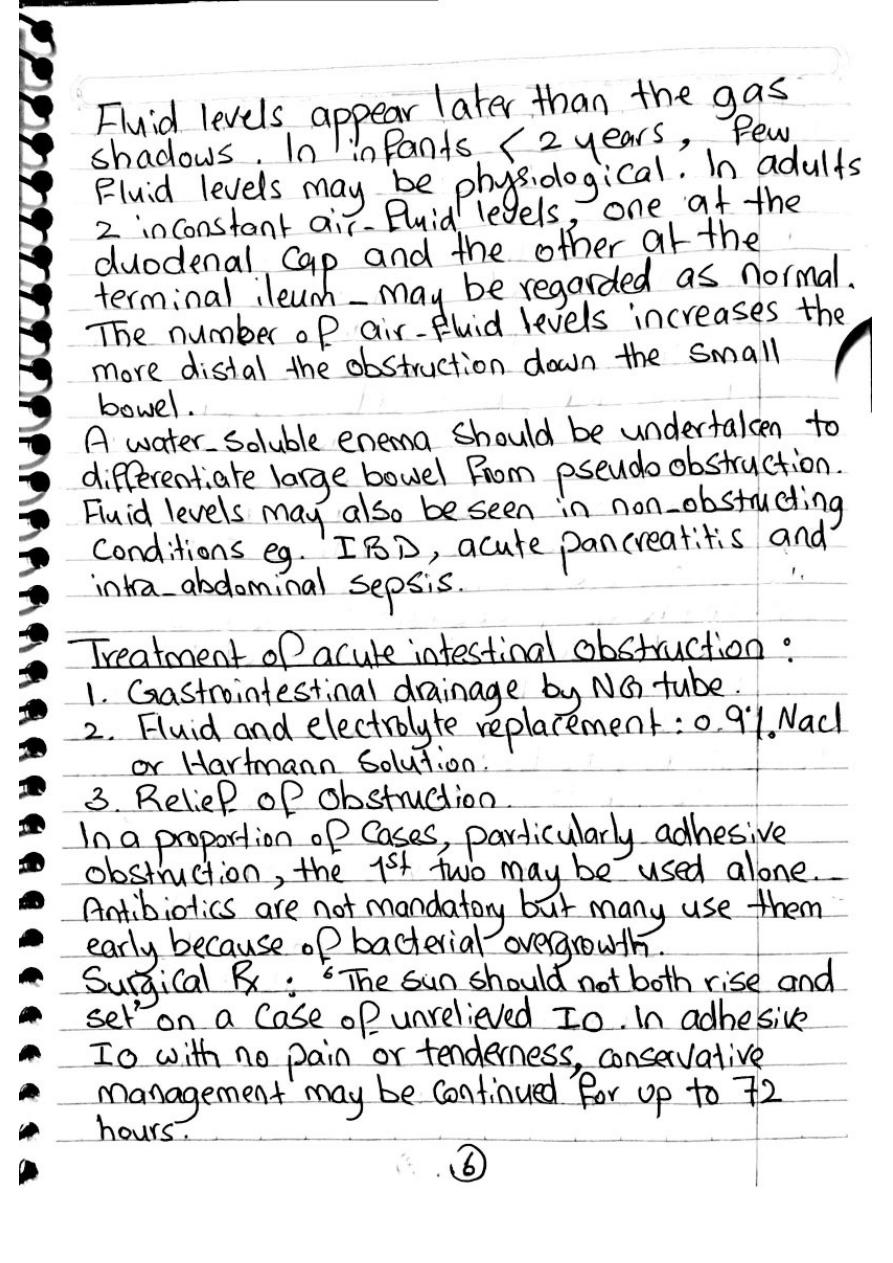 Fluid levels appear later than the gas
shadows. In infants < 2 years, few
fluid levels may be physiological. In adults
2 inconstant air-fluid levels, one at the
duodenal cap and the other at the
terminal ileum - may be regarded as normal.
The number of air-fluid levels increases the
more distal the obstruction down the small
bowel.
A water-soluble enema should be undertaken to
differentiate large bowel from pseudo obstruction.
Fluid levels may also be seen in non-obstructing
conditions eg. IBD, acute pancreatitis and
intra-abdominal sepsis.
Treatment of acute intestinal obstruction:
1. Gastrointestinal drainage by NG tube.
2. Fluid and electrolyte replacement: 0.9%. Nacl
or Hartmann Solution.
3. Relief of obstruction.
In a proportion of cases, particularly adhesive
obstruction, the 1st two may be used alone.
Antibiotics are not mandatory but many use them
early because of bacterial overgrowth.
Surgical Rx: "The sun should not both rise and
set" on a case of unrelieved IO. In adhesive
IO with no pain or tenderness, conservative
management may be continued for up to 72
hours.
6